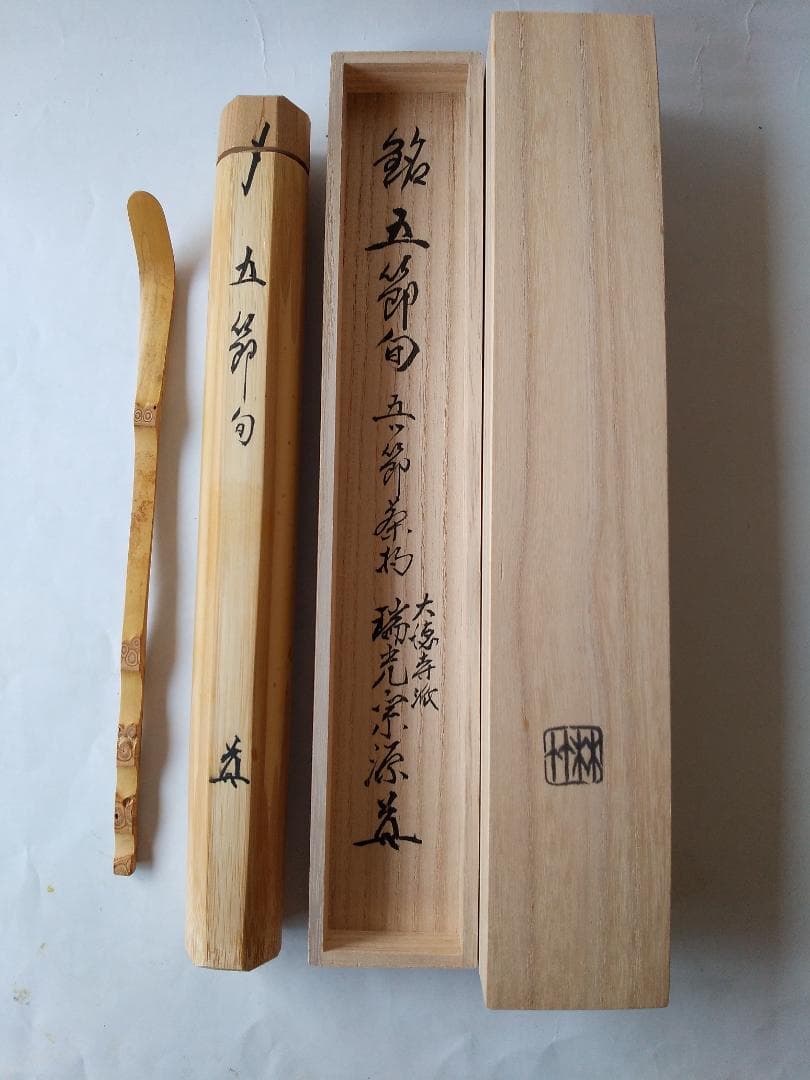 銘 五節句 五ツ節茶杓
大徳寺派
瑞光宗源
〆 五節句
竹林